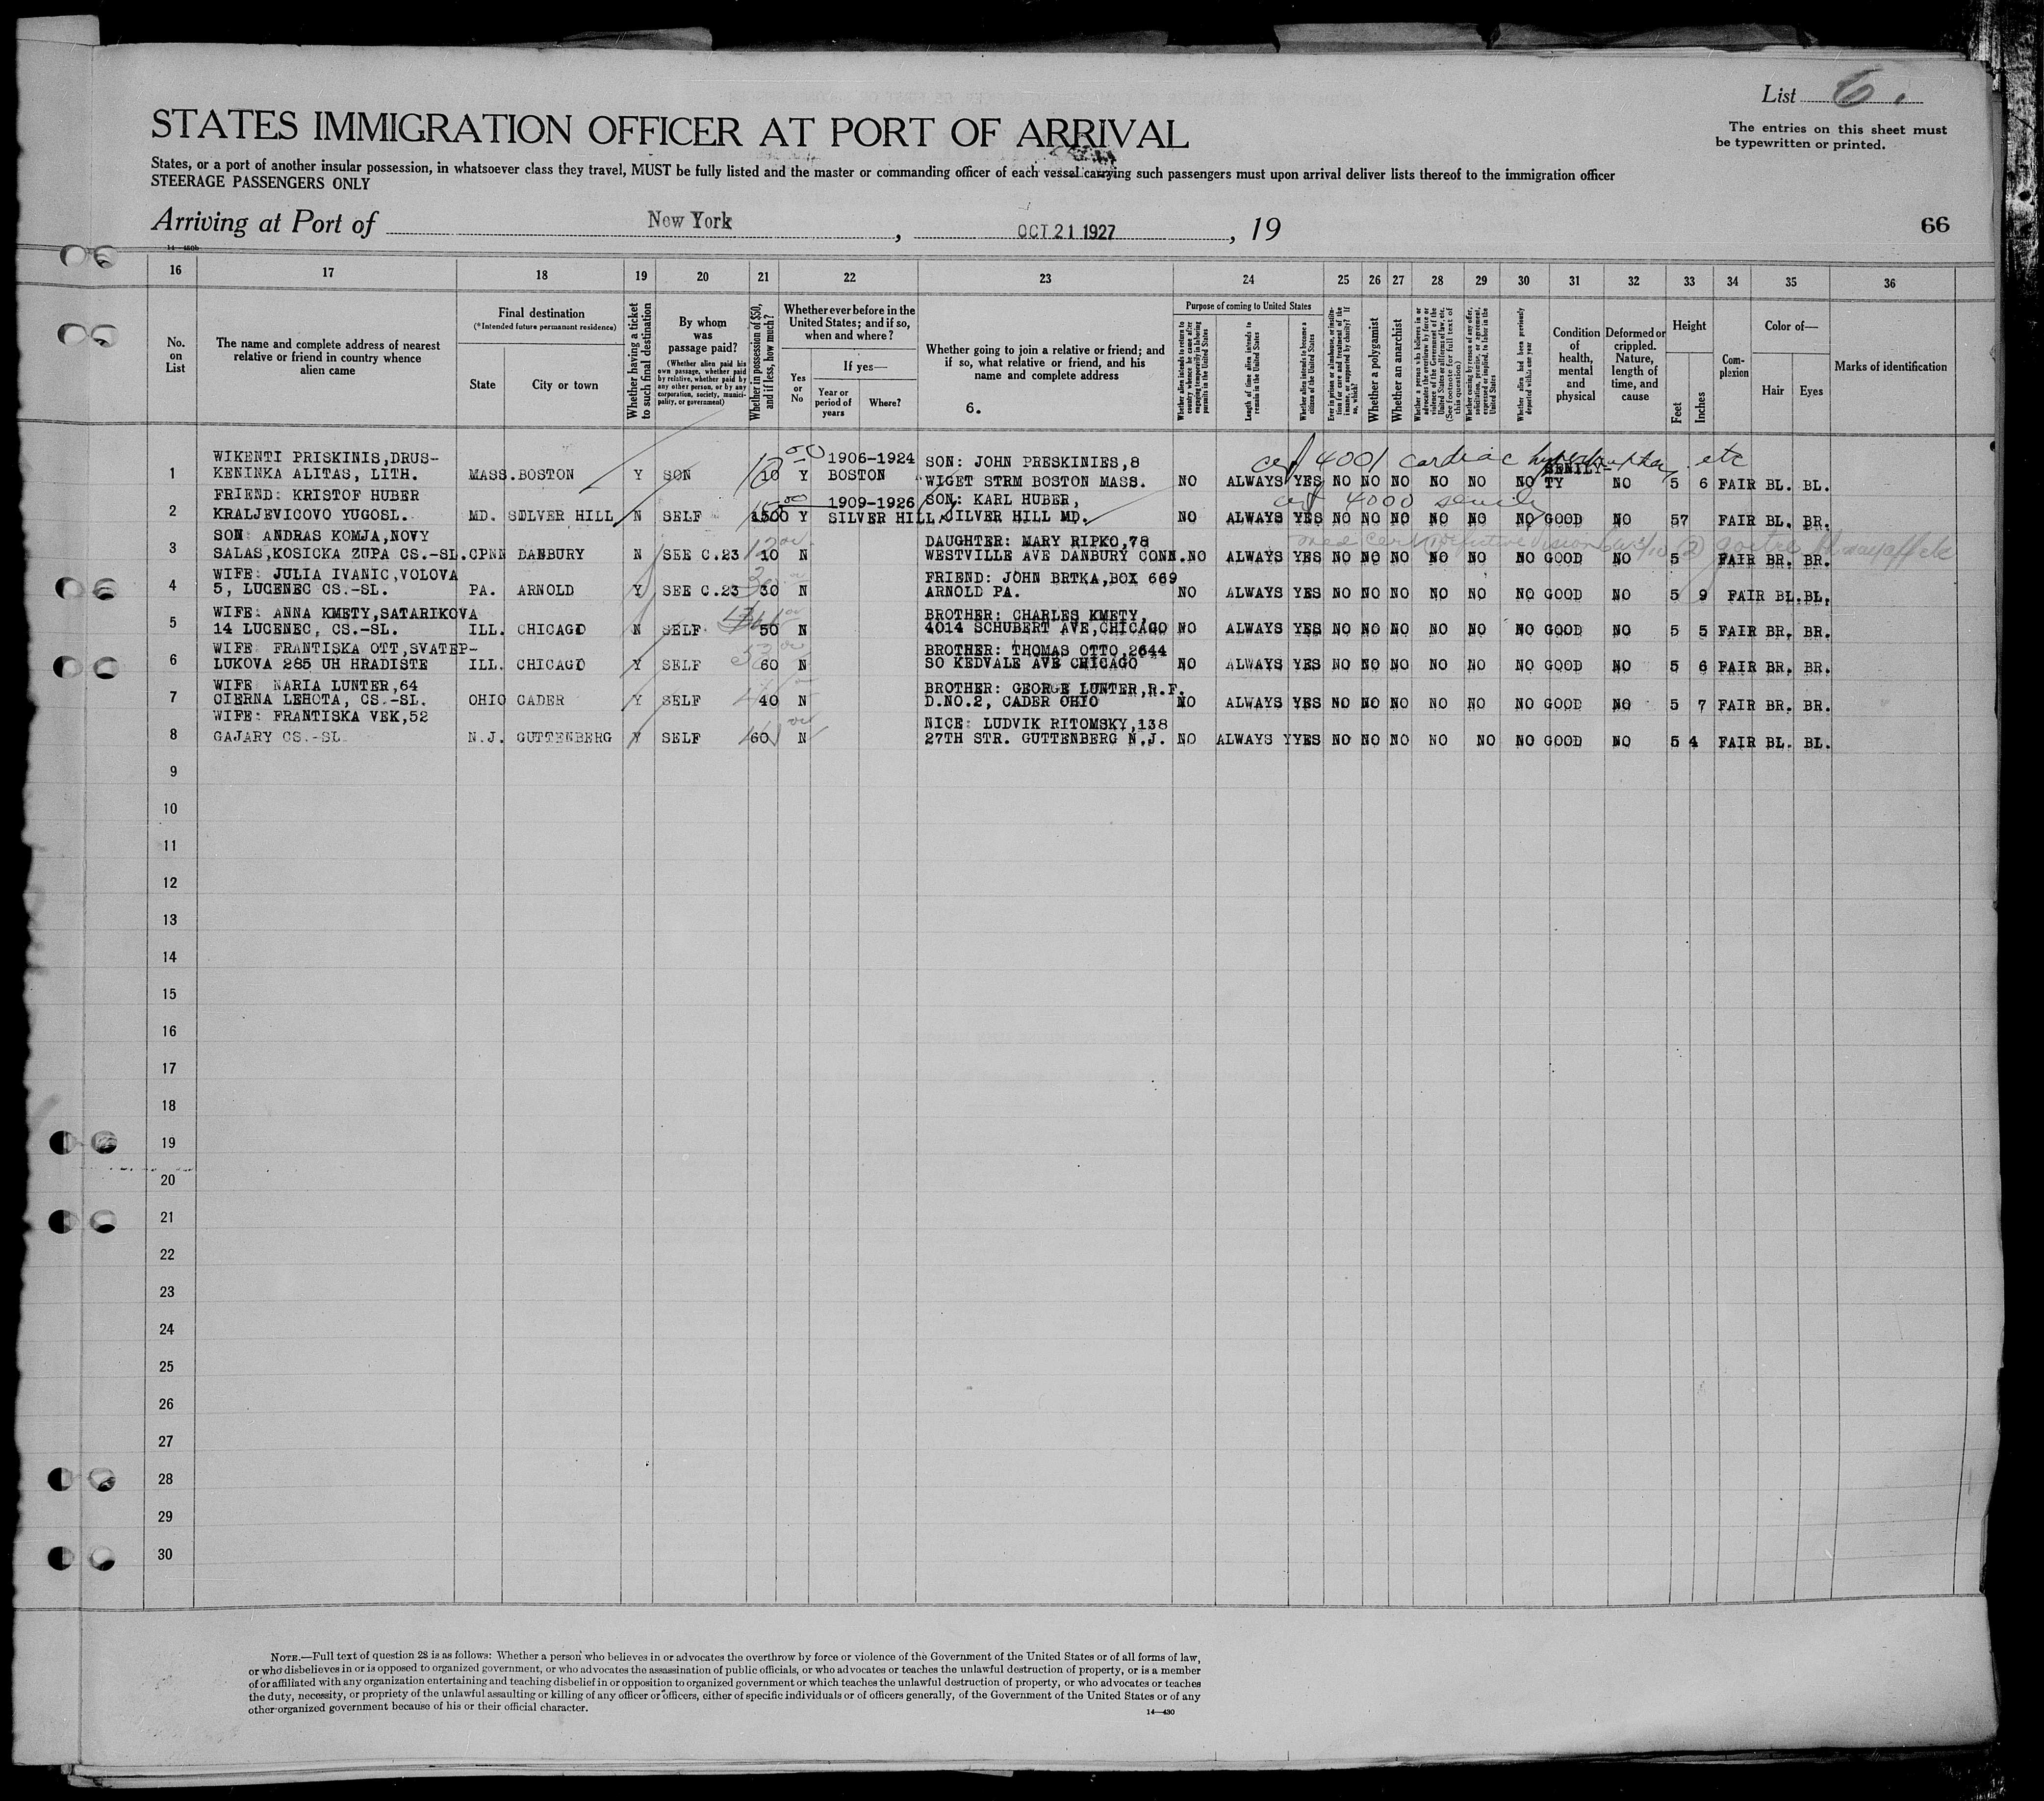 List 6.
STATES IMMIGRATION OFFICER AT PORT OF ARRIVAL
The entries on this sheet must
be typewritten or printed.
States, or a port of another insular possession, in whatsoever class they travel, MUST be fully listed and the master or commanding officer of each vessel carrying such passengers must upon arrival deliver lists thereof to the immigration officer
STEERAGE PASSENGERS ONLY
Arriving at Port of New York, OCT 21 1927, 19
66
16 17 18 19 20 21 22 23 24 25 26 27 28 29 30 31 32 33 34 35 36
No. on List
The name and complete address of nearest
relative or friend in country whence
alien came
Final destination
(*Intended future permanent residence)
State
City or town
Whether having a ticket
to such final destination
By whom
was
passage paid?
(Whether alien paid his
own passage, whether paid
by relative, whether paid by
any other person, or by any
corporation, society, munici-
pality, or government)
Whether in possession of $50,
and if less, how much?
Whether ever before in the
United States; and if so,
when and where?
Yes or No
If yes—
Year or
period of
years
Where?
Whether going to join a relative or friend; and
if so, what relative or friend, and his
name and complete address
6.
Purpose of coming to United States
Whether alien intends to return to
country whence he came after
engaging temporarily in laboring
pursuits in the United States
Length of time alien intends to
remain in the United States
Whether alien intends to become a
citizen of the United States
Ever in prison or almshouse, or institu-
tion for care and treatment of the
insane, or supported by charity? If
so, which?
Whether a polygamist
Whether an anarchist
Whether a person who believes in or
advocates the overthrow by force or
violence of the Government of the
United States or all forms of law, etc.
(See footnote for full text of
this question)
Whether coming by reason of any offer,
solicitation, promise, or agreement,
expressed or implied, to labor in the
United States
Whether alien had been previously
deported within one year
Condition
of
health,
mental
and
physical
Deformed or
crippled.
Nature,
length of
time, and
cause
Height
Feet
Inches
Com-
plexion
Color of—
Hair
Eyes
Marks of identification
WIKENTI PRISKINIS,DRUS- 1906-1924 SON: JOHN PRESKINIES,8 cert 4001 cardiac hypertrophy etc SENILI-
1 KENINKA ALITAS, LITH. MASS. BOSTON Y SON 10 Y BOSTON WIGET STRM BOSTON MASS. NO ALWAYS YES NO NO NO NO NO NO TY NO 5 6 FAIR BL. BL.
FRIEND: KRISTOF HUBER 1909-1926 SON: KARL HUBER, cert 4000 senility
2 KRALJEVICOVO YUGOSL. MD. SILVER HILL N SELF 1500 Y SILVER HILL SILVER HILL MD. NO ALWAYS YES NO NO NO NO NO NO GOOD NO 57 FAIR BL. BR.
SON: ANDRAS KOMJA,NOVY DAUGHTER: MARY RIPKO,78 med cert defective vision goitre
3 SALAS,KOSICKA ZUPA CS.-SL. CPNN DANBURY N SEE C.23 10 N WESTVILLE AVE DANBURY CONN. NO ALWAYS YES NO NO NO NO NO NO GOOD NO 5 FAIR BR. BR.
WIFE: JULIA IVANIC,VOLOVA FRIEND: JOHN BRTKA,BOX 669
4 5, LUCENEC CS.-SL. PA. ARNOLD Y SEE C.23 30 N ARNOLD PA. NO ALWAYS YES NO NO NO NO NO NO GOOD NO 5 9 FAIR BL. BL.
WIFE: ANNA KMETY,SATARIKOVA BROTHER: CHARLES KMETY,
5 14 LUCENEC, CS.-SL. ILL. CHICAGO N SELF 50 N 4014 SCHUBERT AVE,CHICAGO NO ALWAYS YES NO NO NO NO NO NO GOOD NO 5 5 FAIR BR. BR.
WIFE: FRANTISKA OTT,SVATEP- BROTHER: THOMAS OTTO,2644
6 LUKOVA 285 UH HRADISTE ILL. CHICAGO Y SELF 60 N SO KEDVALE AVE CHICAGO NO ALWAYS YES NO NO NO NO NO NO GOOD NO 5 6 FAIR BR. BR.
WIFE NARIA LUNTER,64 BROTHER: GEORGE LUNTER,R.F.
7 CIERNA LEHOTA, CS.-SL. OHIO CADER Y SELF 40 N D.NO.2, CADER OHIO NO ALWAYS YES NO NO NO NO NO NO GOOD NO 5 7 FAIR BR. BR.
WIFE: FRANTISKA VEK,52 NICE: LUDVIK RITOMSKY,138
8 GAJARY CS.-SL N.J. GUTTENBERG Y SELF 60 N 27TH STR. GUTTENBERG N.J. NO ALWAYS YYES NO NO NO NO NO NO GOOD NO 5 4 FAIR BL. BL.
9
10
11
12
13
14
15
16
17
18
19
20
21
22
23
24
25
26
27
28
29
30
NOTE.—Full text of question 28 is as follows: Whether a person who believes in or advocates the overthrow by force or violence of the Government of the United States or of all forms of law,
or who disbelieves in or is opposed to organized government, or who advocates the assassination of public officials, or who advocates or teaches the unlawful destruction of property, or is a member
of or affiliated with any organization entertaining and teaching disbelief in or opposition to organized government or which teaches the unlawful destruction of property, or who advocates or teaches
the duty, necessity, or propriety of the unlawful assaulting or killing of any officer or officers, either of specific individuals or of officers generally, of the Government of the United States or of any
other organized government because of his or their official character.
14—430